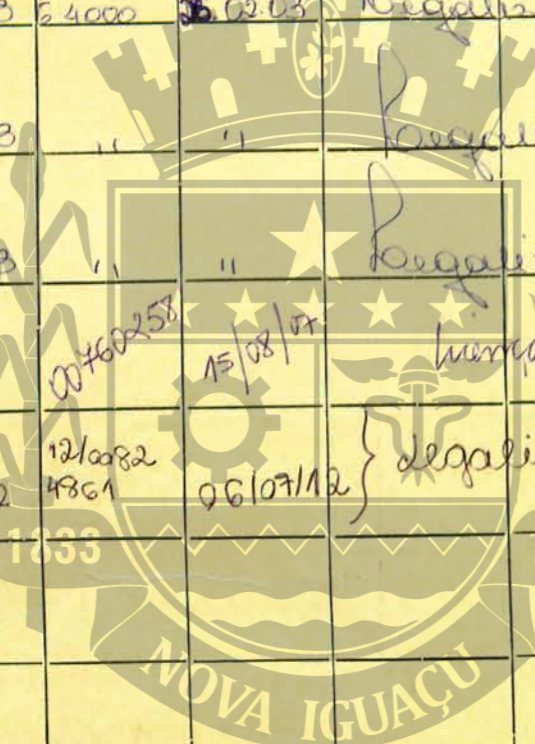 3 54000 26.02.03 Legaliz
3 " " Legaliz
3 " " Legaliz
00760258 15/08/07 Licença
12/0082
2 4861 06/07/12 } Legali
1833
NOVA IGUAÇU